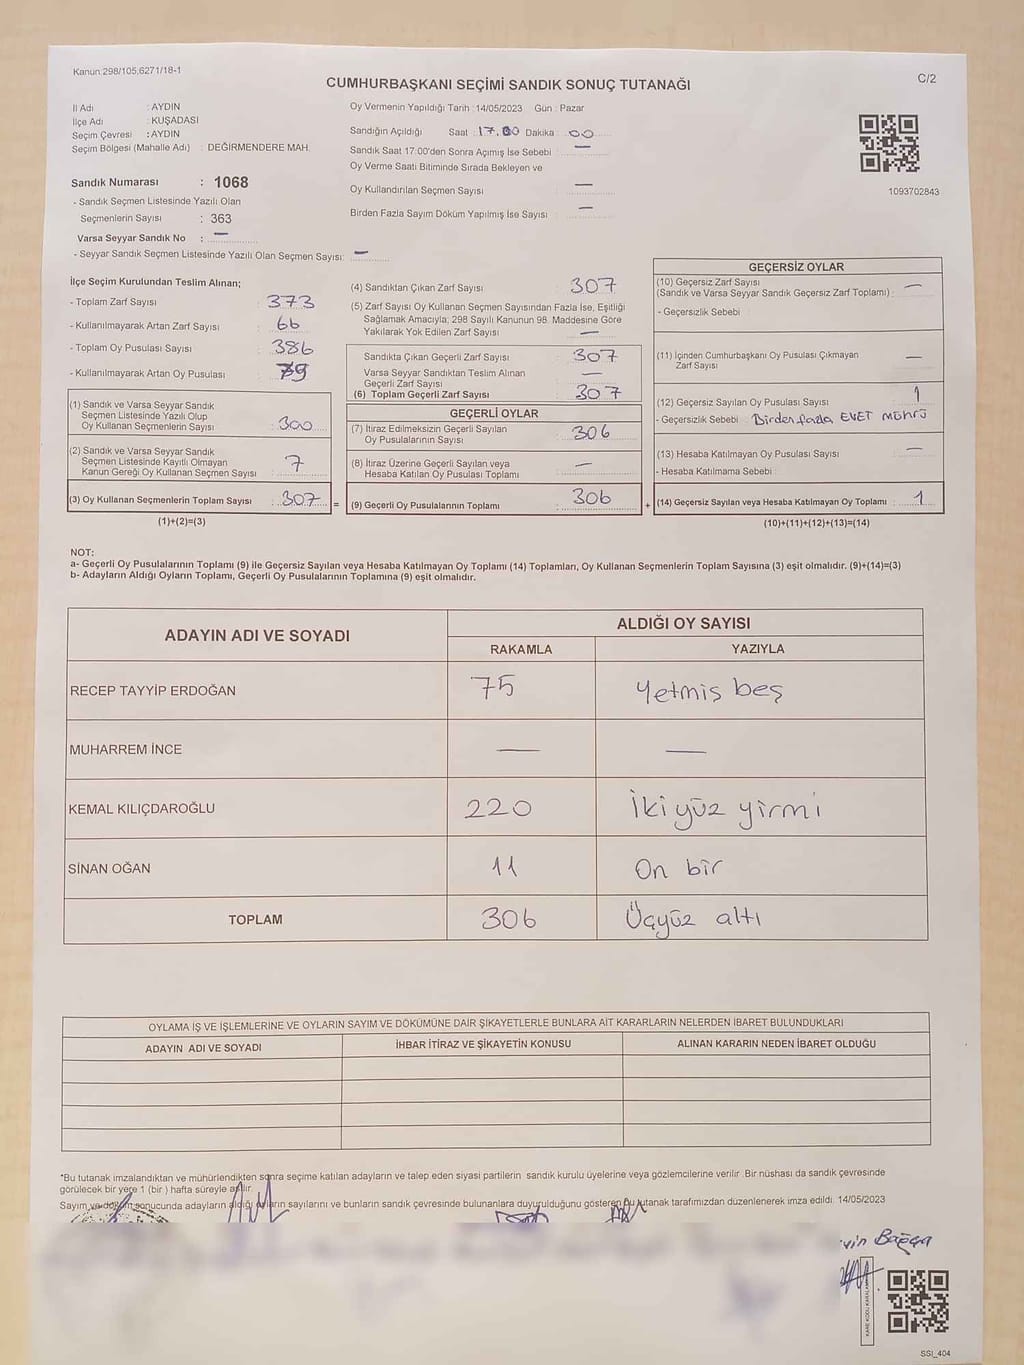 Kanun:298/105,6271/18-1
C/2
CUMHURBAŞKANI SEÇİMİ SANDIK SONUÇ TUTANAĞI
İl Adı : AYDIN
İlçe Adı : KUŞADASI
Seçim Çevresi : AYDIN
Seçim Bölgesi (Mahalle Adı) : DEĞİRMENDERE MAH.
Sandık Numarası : 1068
- Sandık Seçmen Listesinde Yazılı Olan
Seçmenlerin Sayısı : 363
Varsa Seyyar Sandık No : —
- Seyyar Sandık Seçmen Listesinde Yazılı Olan Seçmen Sayısı: —
Oy Vermenin Yapıldığı Tarih : 14/05/2023 Gün : Pazar
Sandığın Açıldığı Saat : 17.00 Dakika : 00
Sandık Saat 17:00'den Sonra Açımış İse Sebebi : —
Oy Verme Saati Bitiminde Sırada Bekleyen ve
Oy Kullandırılan Seçmen Sayısı : —
Birden Fazla Sayım Döküm Yapılmış İse Sayısı : —
1093702843
İlçe Seçim Kurulundan Teslim Alınan;
- Toplam Zarf Sayısı : 373
- Kullanılmayarak Artan Zarf Sayısı : 66
- Toplam Oy Pusulası Sayısı : 386
- Kullanılmayarak Artan Oy Pusulası : 79
(1) Sandık ve Varsa Seyyar Sandık
Seçmen Listesinde Yazılı Olup
Oy Kullanan Seçmenlerin Sayısı : 300
(2) Sandık ve Varsa Seyyar Sandık
Seçmen Listesinde Kayıtlı Olmayan
Kanun Gereği Oy Kullanan Seçmen Sayısı : 7
(3) Oy Kullanan Seçmenlerin Toplam Sayısı : 307 =
(1)+(2)=(3)
(4) Sandıktan Çıkan Zarf Sayısı : 307
(5) Zarf Sayısı Oy Kullanan Seçmen Sayısından Fazla İse, Eşitliği
Sağlamak Amacıyla; 298 Sayılı Kanunun 98. Maddesine Göre
Yakılarak Yok Edilen Zarf Sayısı : —
Sandıkta Çıkan Geçerli Zarf Sayısı : 307
Varsa Seyyar Sandıktan Teslim Alınan
Geçerli Zarf Sayısı : —
(6) Toplam Geçerli Zarf Sayısı : 307
GEÇERLİ OYLAR
(7) İtiraz Edilmeksizin Geçerli Sayılan
Oy Pusulalarının Sayısı : 306
(8) İtiraz Üzerine Geçerli Sayılan veya
Hesaba Katılan Oy Pusulası Toplamı : —
(9) Geçerli Oy Pusulalarının Toplamı : 306 +
GEÇERSİZ OYLAR
(10) Geçersiz Zarf Sayısı
(Sandık ve Varsa Seyyar Sandık Geçersiz Zarf Toplamı) : —
- Geçersizlik Sebebi :
(11) İçinden Cumhurbaşkanı Oy Pusulası Çıkmayan
Zarf Sayısı : —
(12) Geçersiz Sayılan Oy Pusulası Sayısı : 1
- Geçersizlik Sebebi : Birden fazla EVET MÜHRÜ
(13) Hesaba Katılmayan Oy Pusulası Sayısı : —
- Hesaba Katılmama Sebebi :
(14) Geçersiz Sayılan veya Hesaba Katılmayan Oy Toplamı : 1
(10)+(11)+(12)+(13)=(14)
NOT:
a- Geçerli Oy Pusulalarının Toplamı (9) ile Geçersiz Sayılan veya Hesaba Katılmayan Oy Toplamı (14) Toplamları, Oy Kullanan Seçmenlerin Toplam Sayısına (3) eşit olmalıdır. (9)+(14)=(3)
b- Adayların Aldığı Oyların Toplamı, Geçerli Oy Pusulalarının Toplamına (9) eşit olmalıdır.
ADAYIN ADI VE SOYADI ALDIĞI OY SAYISI
RAKAMLA YAZIYLA
RECEP TAYYİP ERDOĞAN 75 Yetmiş beş
MUHARREM İNCE — —
KEMAL KILIÇDAROĞLU 220 İki yüz yirmi
SİNAN OĞAN 11 On bir
TOPLAM 306 Üçyüz altı
OYLAMA İŞ VE İŞLEMLERİNE VE OYLARIN SAYIM VE DÖKÜMÜNE DAİR ŞİKAYETLERLE BUNLARA AİT KARARLARIN NELERDEN İBARET BULUNDUKLARI
ADAYIN ADI VE SOYADI İHBAR İTİRAZ VE ŞİKAYETİN KONUSU ALINAN KARARIN NEDEN İBARET OLDUĞU
*Bu tutanak imzalandıktan ve mühürlendikten sonra seçime katılan adayların ve talep eden siyasi partilerin sandık kurulu üyelerine veya gözlemcilerine verilir. Bir nüshası da sandık çevresinde
görülecek bir yere 1 (bir) hafta süreyle asılır.
Sayım ve döküm sonucunda adayların aldığı oyların sayılarını ve bunların sandık çevresinde bulunanlara duyurulduğunu gösteren bu tutanak tarafımızdan düzenlenerek imza edildi. 14/05/2023
SSI_404